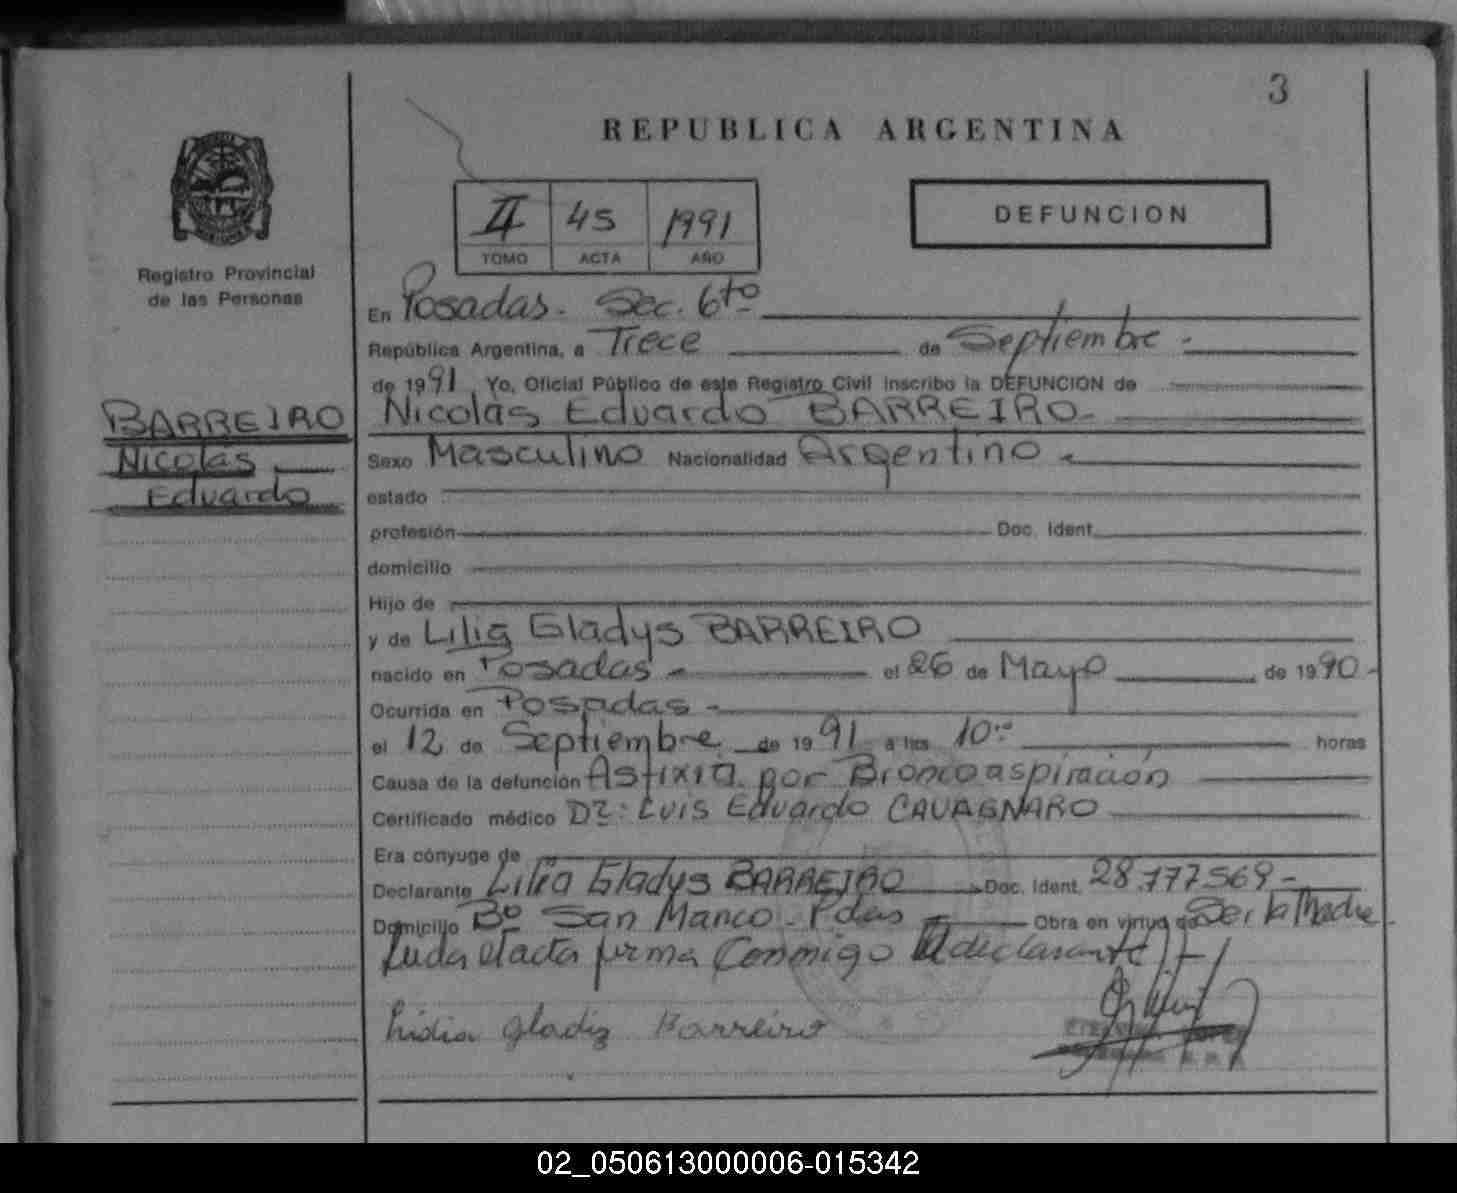 3
REPUBLICA ARGENTINA
Registro Provincial
de las Personas
II 45 1991
TOMO ACTA AÑO
DEFUNCION
En Posadas. Sec. 6to
República Argentina, a Trece de Septiembre -
de 1991, Yo, Oficial Público de este Registro Civil inscribo la DEFUNCION de
BARREIRO
Nicolás
Eduardo
Nicolás Eduardo BARREIRO-
Sexo Masculino Nacionalidad Argentino -
estado
profesión Doc. Ident.
domicilio
Hijo de
y de Lilia Gladys BARREIRO
nacido en Posadas - el 26 de Mayo de 1990-
Ocurrida en Posadas -
el 12 de Septiembre de 1991 a las 10:º horas
Causa de la defunción Asfixia por Broncoaspiración
Certificado médico Dr: Luis Eduardo CAVAGNARO
Era cónyuge de
Declarante Lilia Gladys BARREIRO Doc. Ident. 28.777569-
Domicilio Bº San Marco - Pdas Obra en virtud de Ser la Madre
Leida el acta firma Conmigo el declarante
Lidia Gladiz Barreiro
02_050613000006-015342